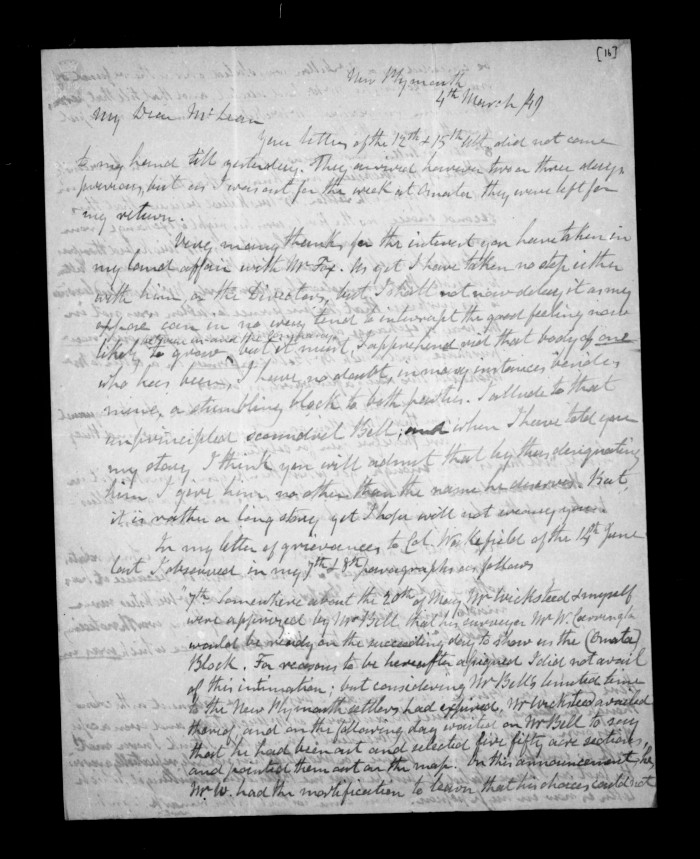 [16]
New Plymouth
4th March /49
My Dear McLean
Your letters of the 12th & 15th Ult. did not come
to my hand till yesterday. They arrived however two or three days
previous, but as I was out for the week at Omata they were left for
my return.
Very many thanks for the interest you have taken in
my land affair with Mr Fox. As yet I have taken no step either
with him or the Directors, but I shall not now delay it as my
can in no way tend to interrupt the good feeling now
between and the Company
likely to grow, but it must, I apprehend rid that body of one
who has been, I have no doubt in many instances besides
mine, a stumbling block to both parties. I allude to that
unprincipled scoundrel Bell; and when I have told you
my story I think you will admit that by thus designating
him I give him no other than the name he deserves. But,
it is rather a long story yet I hope will not weary you.
In my letter of grievances to Col. Wakefield of the 14th June
last I observed in my 7th & 8th paragraphs as follows
7th. Somewhere about the 20th of May Mr Wicksteed & myself
were apprized by Mr Bell that his surveyor Mr W. Carrington
would be ready on the succeeding day to show us the (Omata)
Block. For reasons to be hereafter assigned I did not avail
of this intimation; but considering Mr Bell's limited time
to the New Plymouth settlers had expired, Mr Wicksteed availed
thereof, and on the following day waited on Mr Bell to say
that he had been out and selected five fifty acre sections,
and pointed them out on the map. On this announcement
Mr W. had the mortification to learn that his choices could not